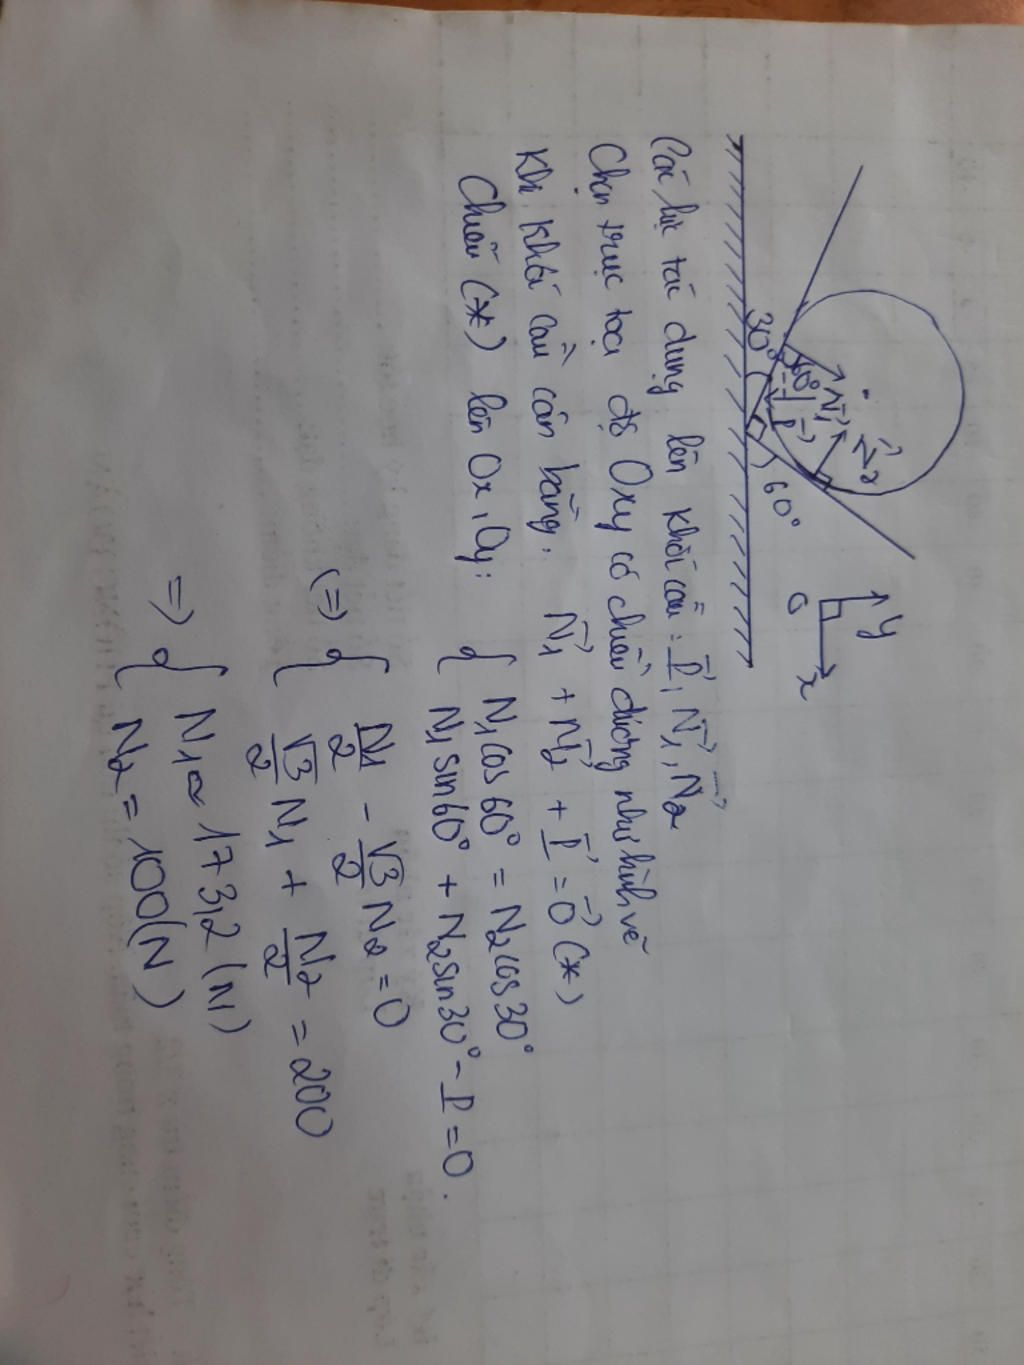 y
O
x
30°
60°
N₁
P
N₂
60°
Các lực tác dụng lên khối cầu: P, N₁, N₂
Chọn trục toạ độ Oxy có chiều dương như hình vẽ
Khi khối cầu cân bằng: N₁ + N₂ + P = 0 (*)
Chiếu (*) lên Ox, Oy: { N₁cos60° = N₂cos30°
N₁sin60° + N₂sin30° - P = 0.
(=) { N₁/2 - √3/2 N₂ = 0
√3/2 N₁ + N₂/2 = 200
=> { N₁ ~ 173,2 (N)
N₂ = 100(N)